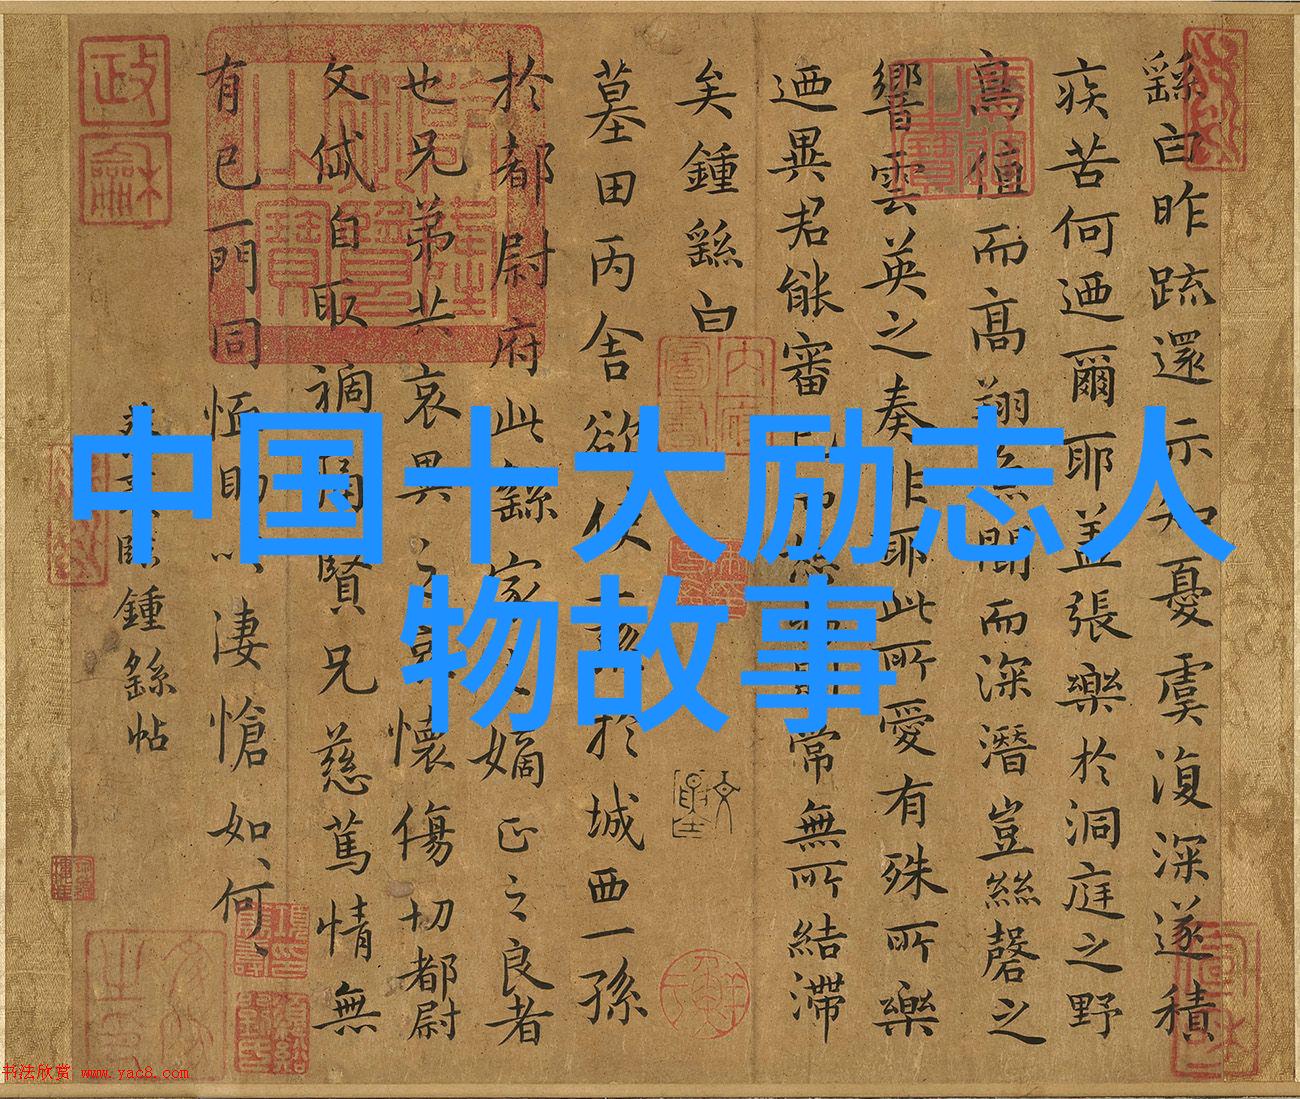 中国十大励志人
物故事
繇白昨疏還示知憂虞復深遂積
疾苦何迺爾耶蓋張樂於洞庭之野
鳥值而高翔魚聞而深潛豈絲磬之
響雲英之奏非耶此所愛有殊所樂
迺異君能審常無所結滯
矣鍾繇白
墓田丙舍欲使一孫於城西一孫
於都尉府此繇家之嫡正之良者
也兄弟共哀異之哀懷傷切都尉
文岱自取禍痛賢兄慈篤情無
有已一門同恤助以悽愴如、何、
臨鍾繇帖
政龢
书法欣赏 www.yac8.com